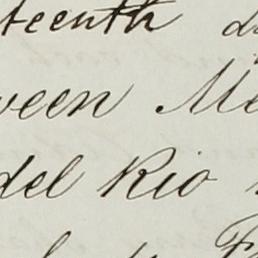 teenth d
ween Me
del Rio